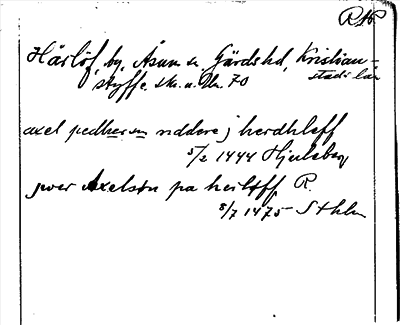 RAP
Härlöf, by, Åsum s. Gärds hd, Kristian-
stads län
Styffe, Sk. u. Un. 70
axel pedherssn riddere j herdhleff
5/2 1444 Hjuleberg
jwer Axelsøn pa herløff R.
8/7 1475 Sthlm